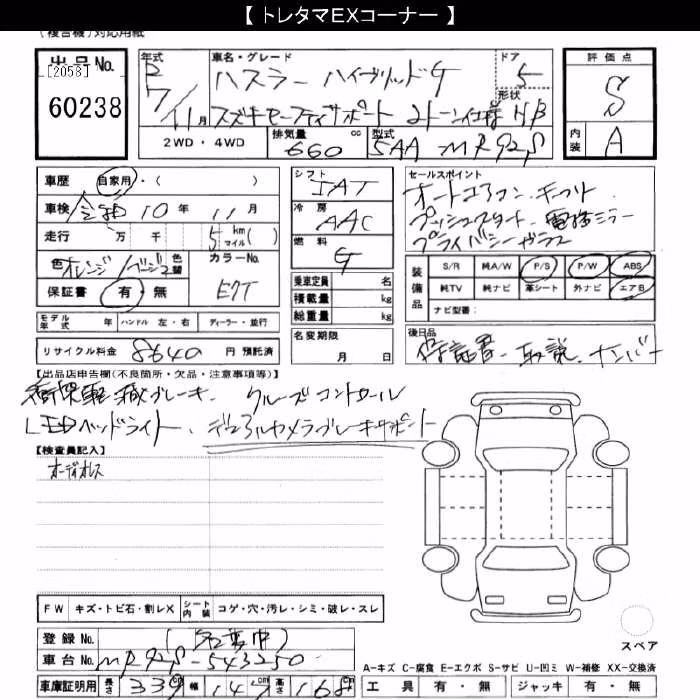 【 トレタマEXコーナー 】
(複合機)対応用紙
出品No. [2058] 60238
年式 R 7/11月
車名・グレード ハスラー ハイブリッドG
スズキセーフティサポート 2トーン仕様
ドア 5
形状 H/B
評価点 S
内装 A
2WD・4WD
排気量 660 cc
型式 5AA-MR92S
車歴 自家用・( )
車検 令和 10年 11月
走行 万 千 5 km マイル( )
色 オレンジ/ベージュ 色替 カラーNo. EKT
保証書 有・無
モデル年式 年 ハンドル 左・右 ディーラー・並行
リサイクル料金 8640 円 預託済
シフト IAT
冷房 AAC
燃料 G
乗車定員 名
積載量 kg
総重量 kg
名変期限 月 日
セールスポイント
オートエアコン・キーフリ
プッシュスタート 電格ミラー
プライバシーガラス
装備品 S/R M/W P/S P/W ABS
純TV 純ナビ 革シート 外ナビ エアB
ナビ型番:
後日品
保証書・取説・ナンバー
【出品店申告欄(不良箇所・欠品・注意事項等)】
衝突軽減ブレーキ. クルーズコントロール
LEDヘッドライト. デュアルカメラブレーキサポート
【検査員記入】
オーディオレス
FW キズ・トビ石・割レX シート内装 コゲ・穴・汚レ・シミ・破レ・スレ
登録No. (名変中)
車台No. MR92S-543250
車庫証明用 長さ 339 cm 幅 147 cm 高さ 168 cm
スペア
A-キズ C-腐食 E-エクボ S-サビ U-凹ミ W-補修 XX-交換済
工具 有・無 ジャッキ 有・無